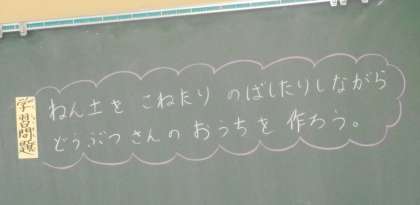 学習問題
ねん土を こねたり のばしたりしながら
どうぶつさんの おうちを 作ろう。